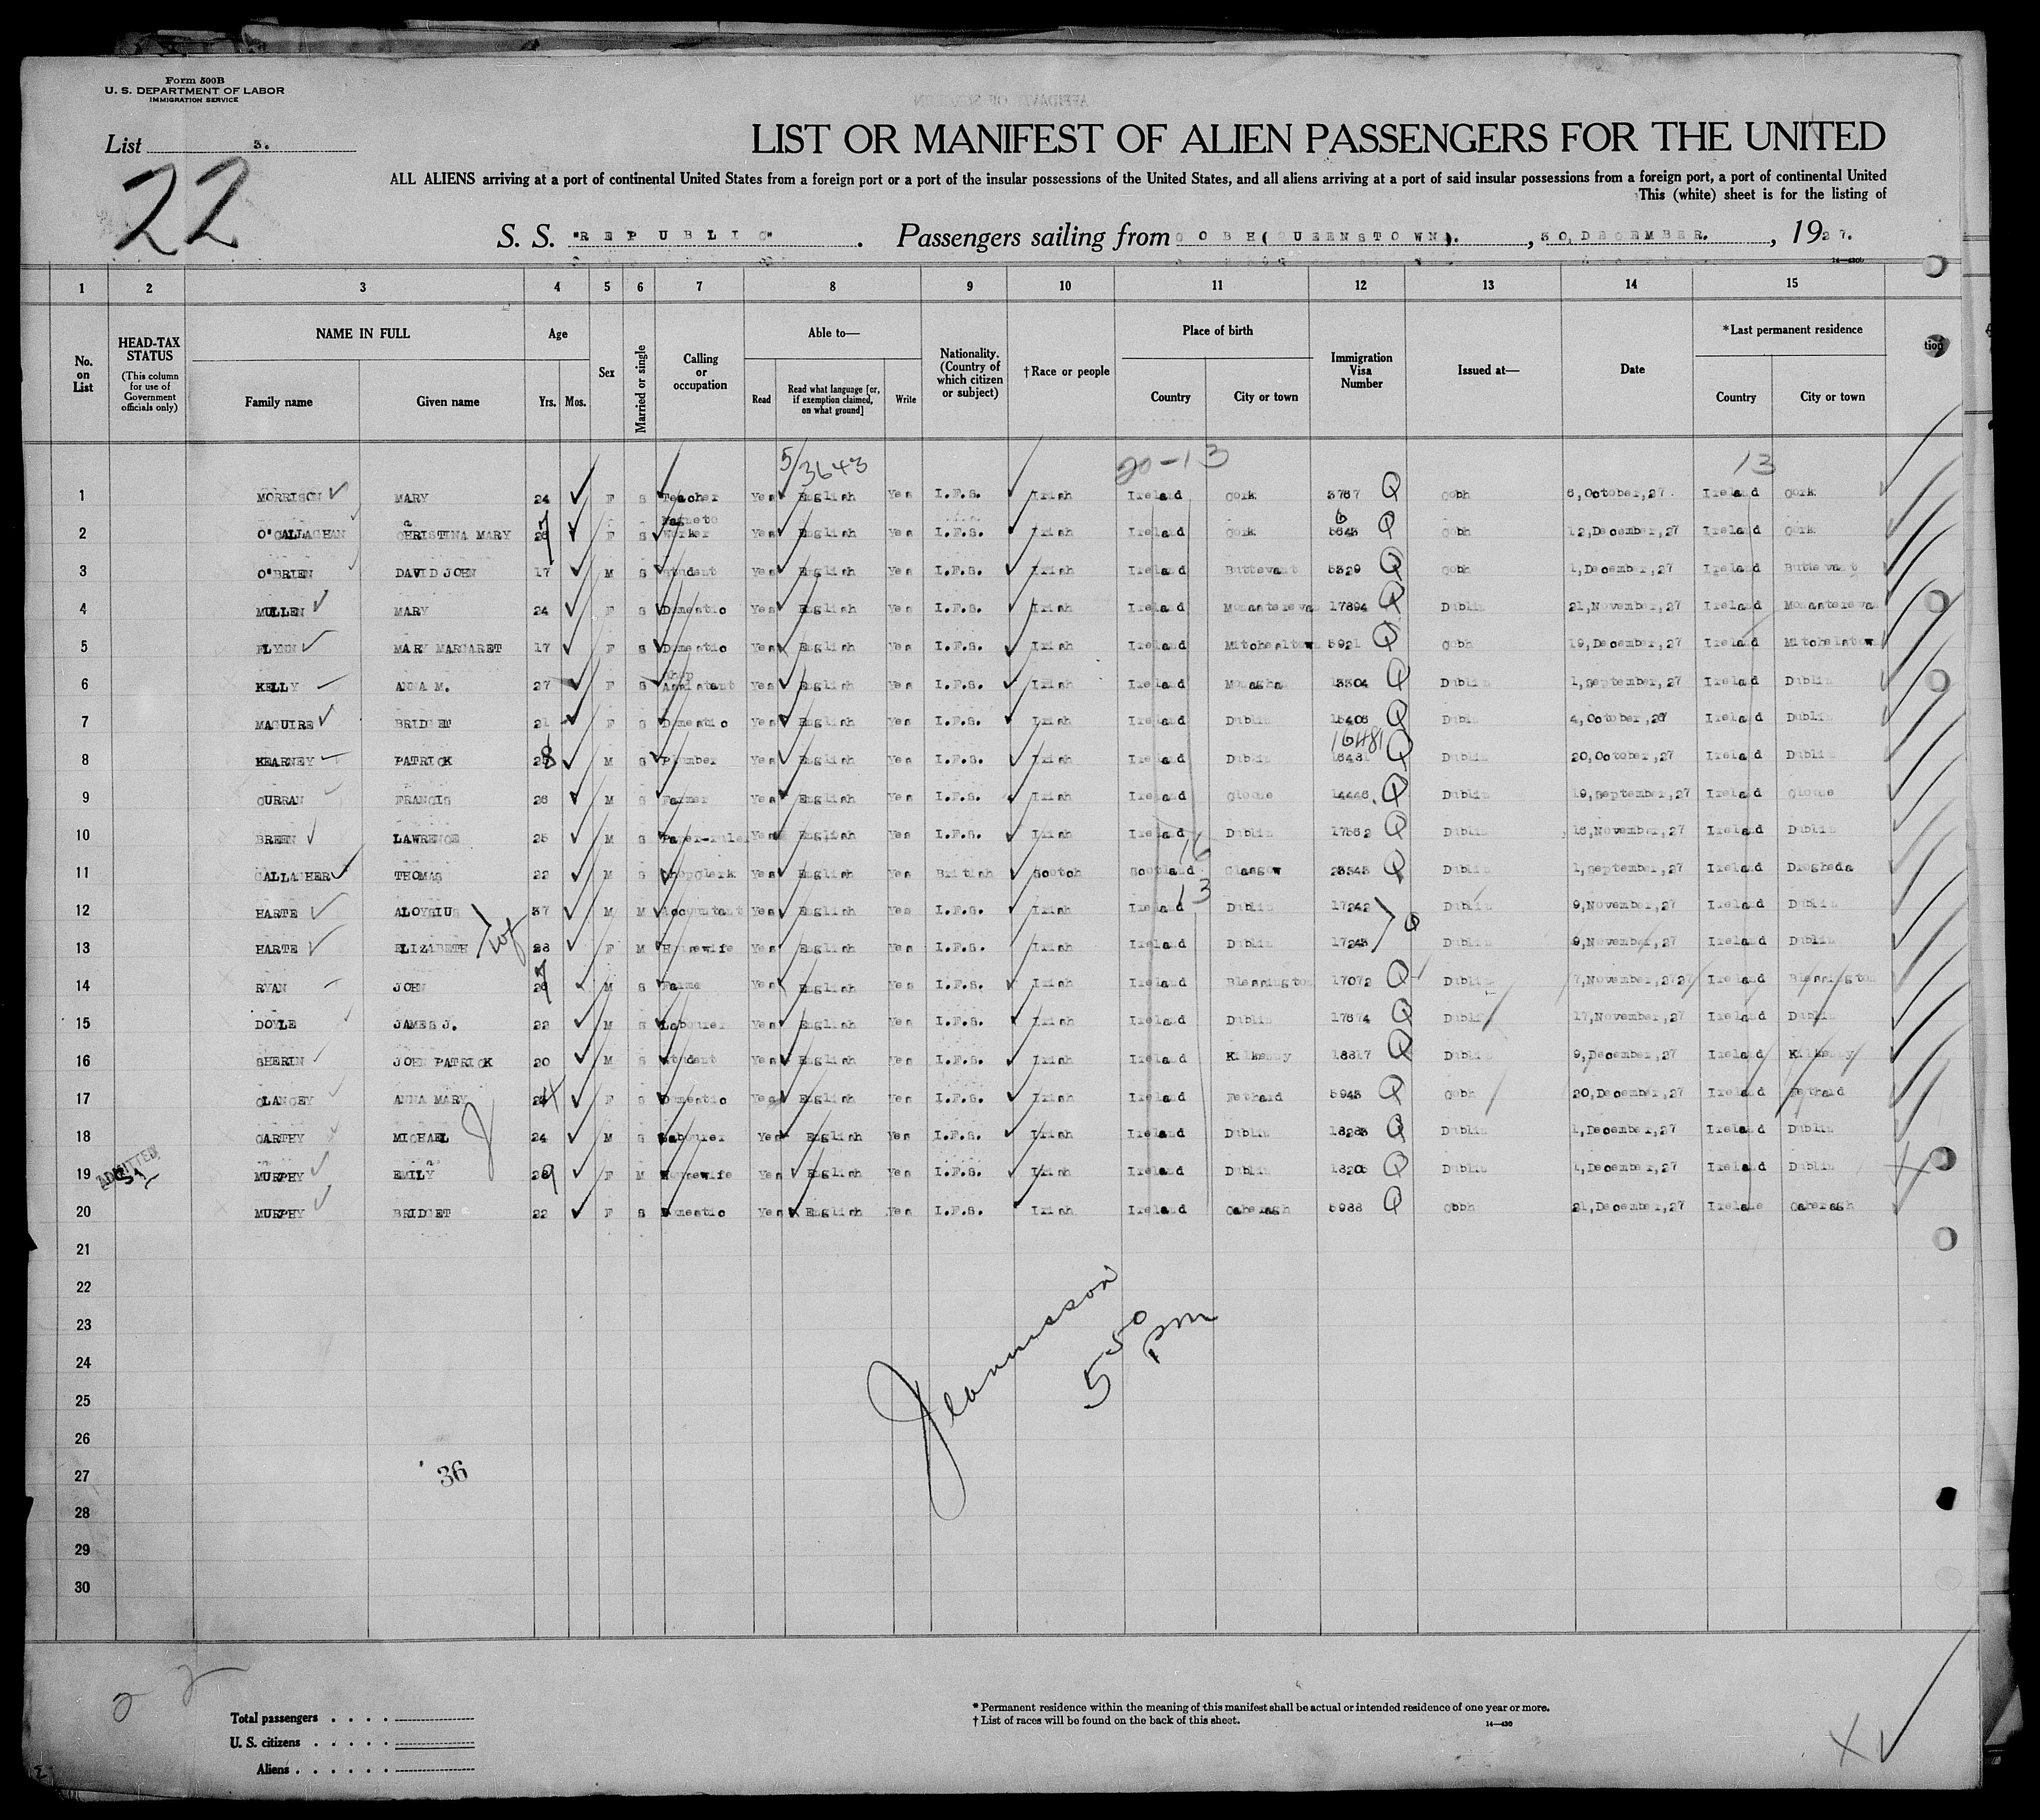 Form 500B
U. S. DEPARTMENT OF LABOR
IMMIGRATION SERVICE
List 3.
22
LIST OR MANIFEST OF ALIEN PASSENGERS FOR THE UNITED
ALL ALIENS arriving at a port of continental United States from a foreign port or a port of the insular possessions of the United States, and all aliens arriving at a port of said insular possessions from a foreign port, a port of continental United
This (white) sheet is for the listing of
S. S. "REPUBLIC". Passengers sailing from COBH (QUEENSTOWN)., 30, DECEMBER., 1927.
14—430b
1 2 3 4 5 6 7 8 9 10 11 12 13 14 15
No. on List HEAD-TAX STATUS (This column for use of Government officials only) NAME IN FULL Family name Given name Age Yrs. Mos. Sex Married or single Calling or occupation Able to— Read Read what language [or, if exemption claimed, on what ground] Write Nationality. (Country of which citizen or subject) †Race or people Place of birth Country City or town Immigration Visa Number Issued at— Date *Last permanent residence Country City or town
5/3643 20-13 13
1 MORRISON MARY 24 F S Teacher Yes English Yes I.F.S. Irish Ireland Cork 3767 Q Cobh 6, October, 27 Ireland Cork
2 O'CALLAGHAN CHRISTINA MARY 7 F S Magneto Worker Yes English Yes I.F.S. Irish Ireland Cork Q Cobh 12, December, 27 Ireland Cork
3 O'BRIEN DAVID JOHN 17 M S Student Yes English Yes I.F.S. Irish Ireland Buttevant 5329 Q Cobh 1, December, 27 Ireland Buttevant
4 MULLEN MARY 24 F S Domestic Yes English Yes I.F.S. Irish Ireland Monastereva 17894 Q Dublin 21, November, 27 Ireland Monastereva
5 FLYNN MARY MARGARET 17 F S Domestic Yes English Yes I.F.S. Irish Ireland Mitcheltown 5921 Q Cobh 19, December, 27 Ireland Mitchelstown
6 KELLY ANNA M. 27 F S Shop Assistant Yes English Yes I.F.S. Irish Ireland Monaghan 13304 Q Dublin 1, September, 27 Ireland Dublin
7 MAGUIRE BRIDGET 21 F S Domestic Yes English Yes I.F.S. Irish Ireland Dublin 15406 Q Dublin 4, October, 27 Ireland Dublin
16481
8 KEARNEY PATRICK 28 M S Plumber Yes English Yes I.F.S. Irish Ireland Dublin Q Dublin 20, October, 27 Ireland Dublin
9 CURRAN FRANCIS 26 M S Farmer Yes English Yes I.F.S. Irish Ireland Cloone 14446 Q Dublin 19, September, 27 Ireland Cloone
10 BREEN LAWRENCE 25 M S Paper-ruler Yes English Yes I.F.S. Irish Ireland Dublin 17562 Q Dublin 16, November, 27 Ireland Dublin
16
11 GALLAGHER THOMAS 22 M S Shop Clerk Yes English Yes British Scotch Scotland Glasgow Q Dublin 1, September, 27 Ireland Drogheda
13
12 HARTE ALOYSIUS 37 M M Accountant Yes English Yes I.F.S. Irish Ireland Dublin 17242 Dublin 9, November, 27 Ireland Dublin
13 HARTE ELIZABETH wf F M Housewife Yes English Yes I.F.S. Irish Ireland Dublin 17243 Q Dublin 9, November, 27 Ireland Dublin
14 RYAN JOHN 7 M S Farmer Yes English Yes I.F.S. Irish Ireland Blessington 17072 Q Dublin 7, November, 27 Ireland Blessington
15 DOYLE JAMES J. 22 M S Labourer Yes English Yes I.F.S. Irish Ireland Dublin 17674 Q Dublin 17, November, 27 Ireland Dublin
16 SHERIN JOHN PATRICK 20 M S Student Yes English Yes I.F.S. Irish Ireland Kilkenny 18817 Q Dublin 9, December, 27 Ireland Kilkenny
17 CLANCEY ANNA MARY 24 F S Domestic Yes English Yes I.F.S. Irish Ireland Fethard 5943 Q Cobh 20, December, 27 Ireland Fethard
18 CARTHY MICHAEL 24 M S Labourer Yes English Yes I.F.S. Irish Ireland Dublin Q Dublin 1, December, 27 Ireland Dublin
19 ADMITTED MURPHY EMILY 29 F M Housewife Yes English Yes I.F.S. Irish Ireland Dublin 18206 Q Dublin 1, December, 27 Ireland Dublin
20 MURPHY BRIDGET 22 F S Domestic Yes English Yes I.F.S. Irish Ireland Caheragh 5988 Q Cobh 21, December, 27 Caheragh
21
22
23
24
25
26
27
28
29
30
5 50 pm
36
22
Total passengers
U. S. citizens
Aliens
* Permanent residence within the meaning of this manifest shall be actual or intended residence of one year or more.
† List of races will be found on the back of this sheet.
14—430